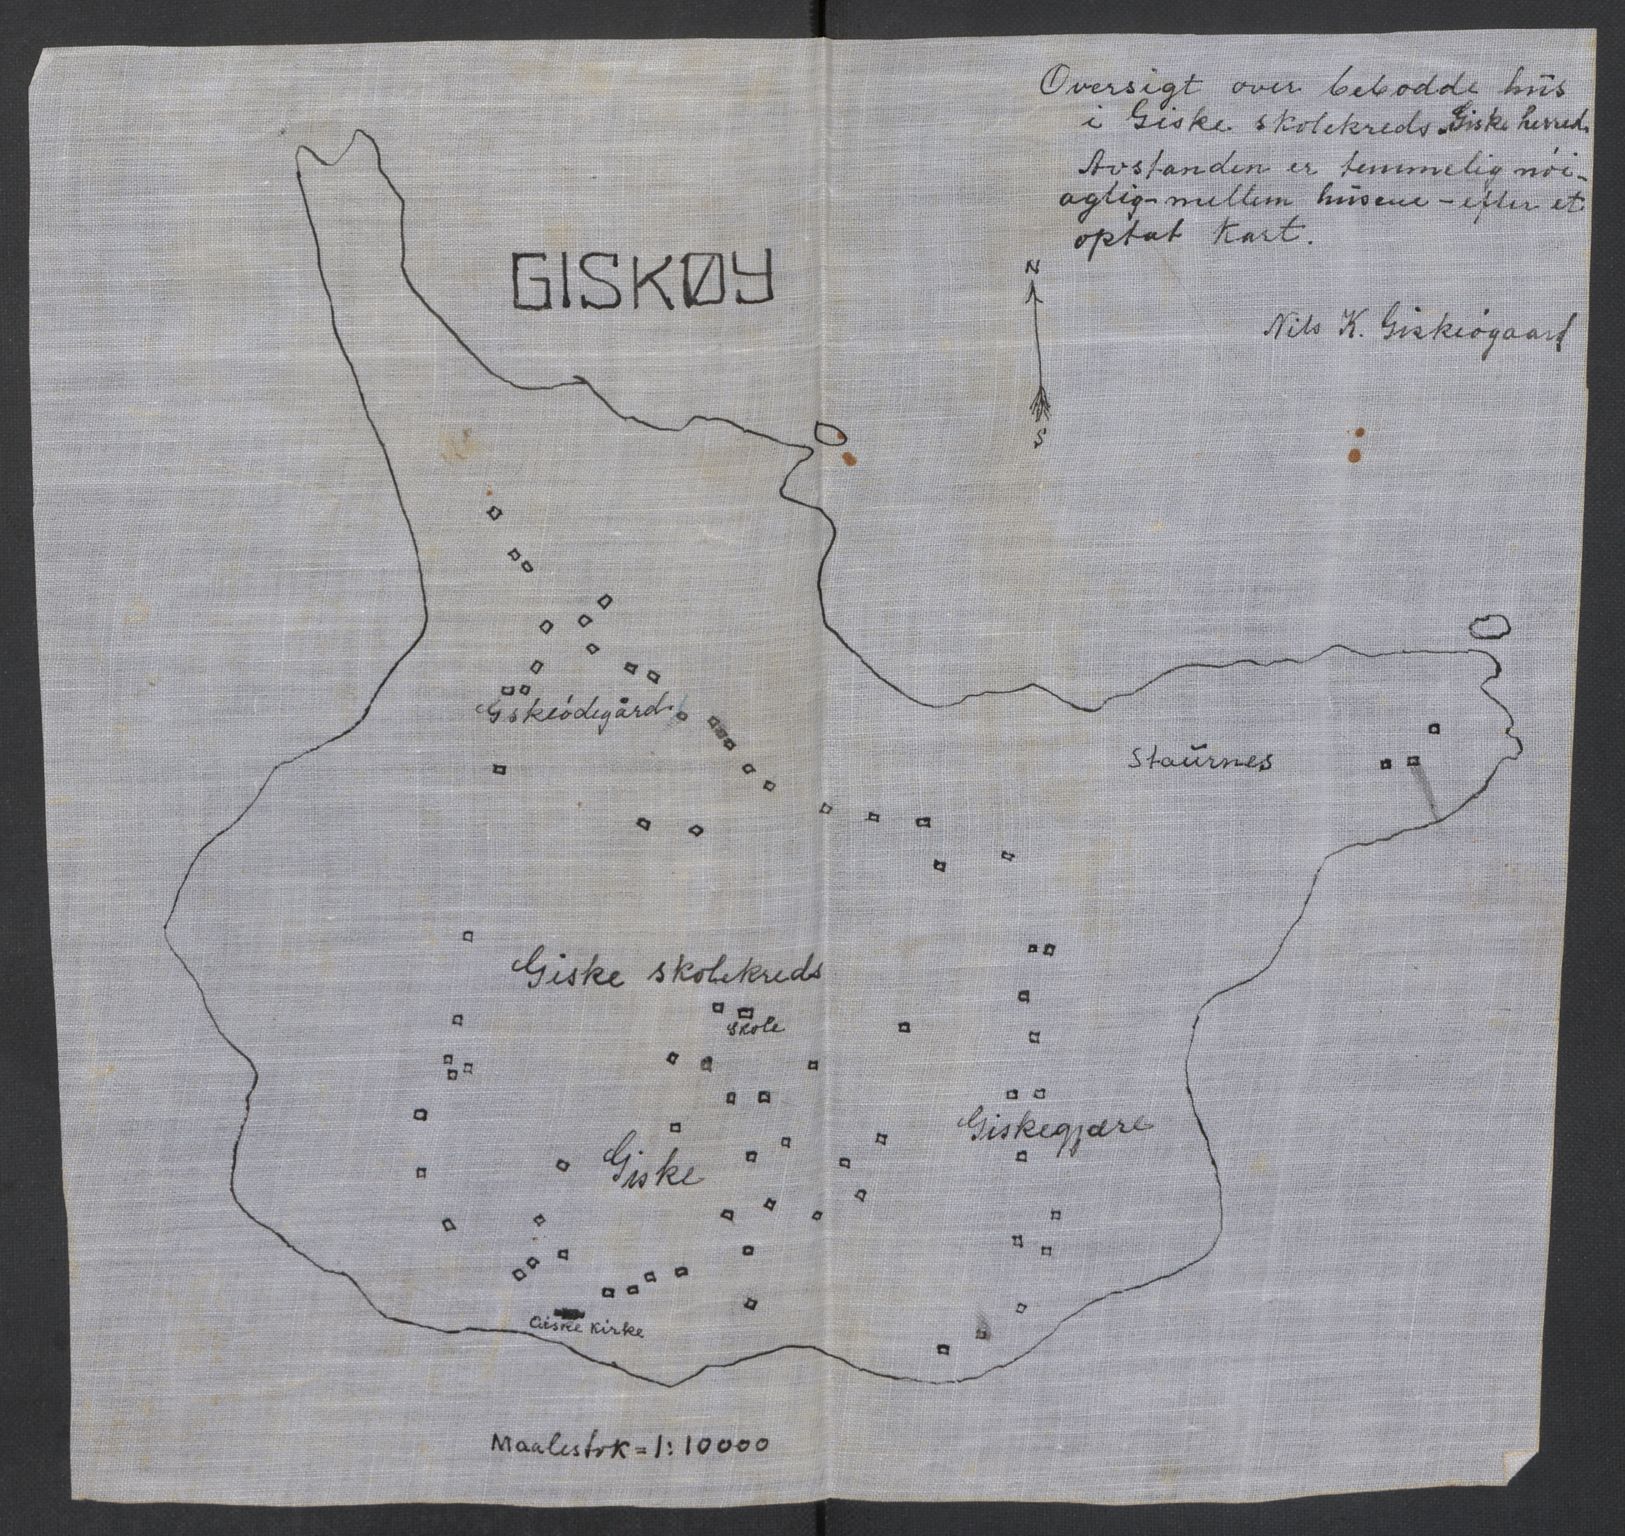 Oversigt over bebodde hūs
i Giske skolekreds Giske herred.
Avstanden er temmelig nöi-
agtig mellem hūsene - efter et
optat Kart.
N
S
Nils K. Giskeögaard
GISKØY
Giskeödegård
Staūrnes
Giske skolekreds
Skole
Giskegjære
Giske
Giske Kirke
Maalestok = 1:10000